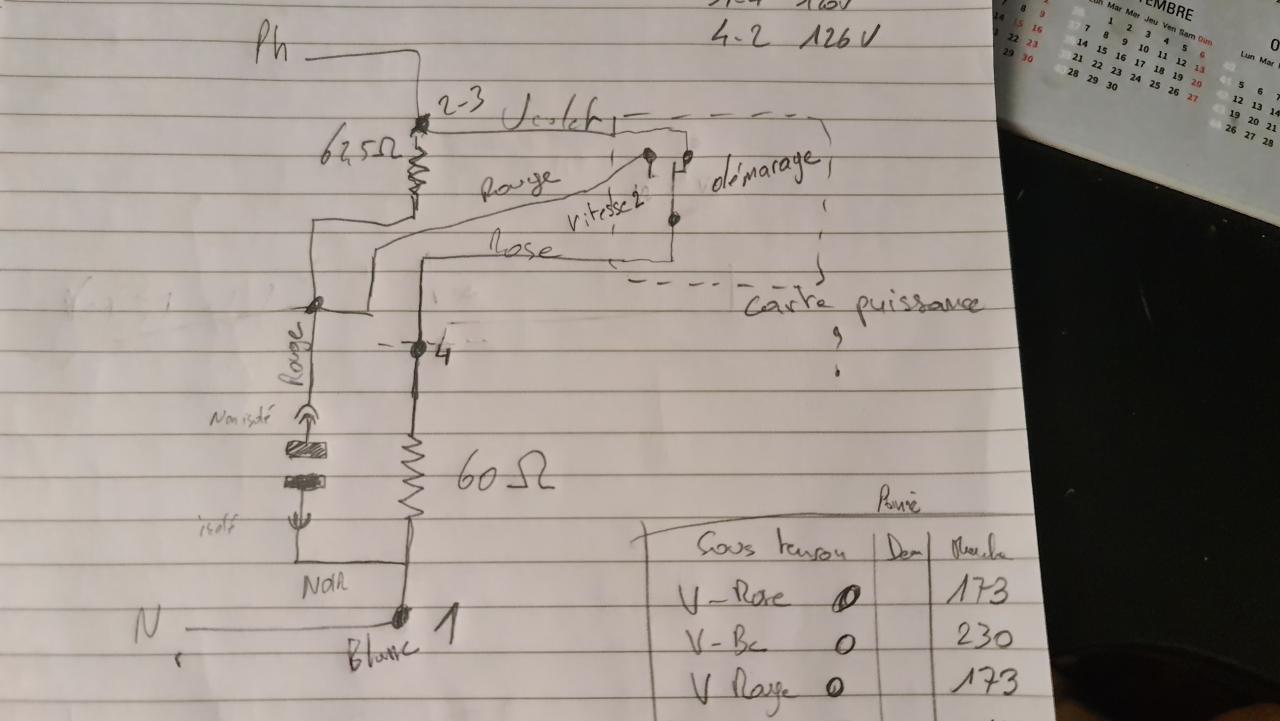 4-2 126V
Ph
2-3
Violet
62,5Ω
démarage
Rouge
vitesse 2
Rose
carte puissance
?
4
Rouge
Non isolé
60 Ω
isolé
Noir
N
1
Blanc
Sous tension Dem Marche
V-Rose 0 173
V-Bc 0 230
V Rouge 0 173
EMBRE
Lun Mar Mer Jeu Ven Sam Dim
1 2 3 4 5 6
7 8 9 10 11 12 13
14 15 16 17 18 19 20
21 22 23 24 25 26 27
28 29 30
Lun Mar
5 6 7
12 13 14
19 20 21
26 27 28